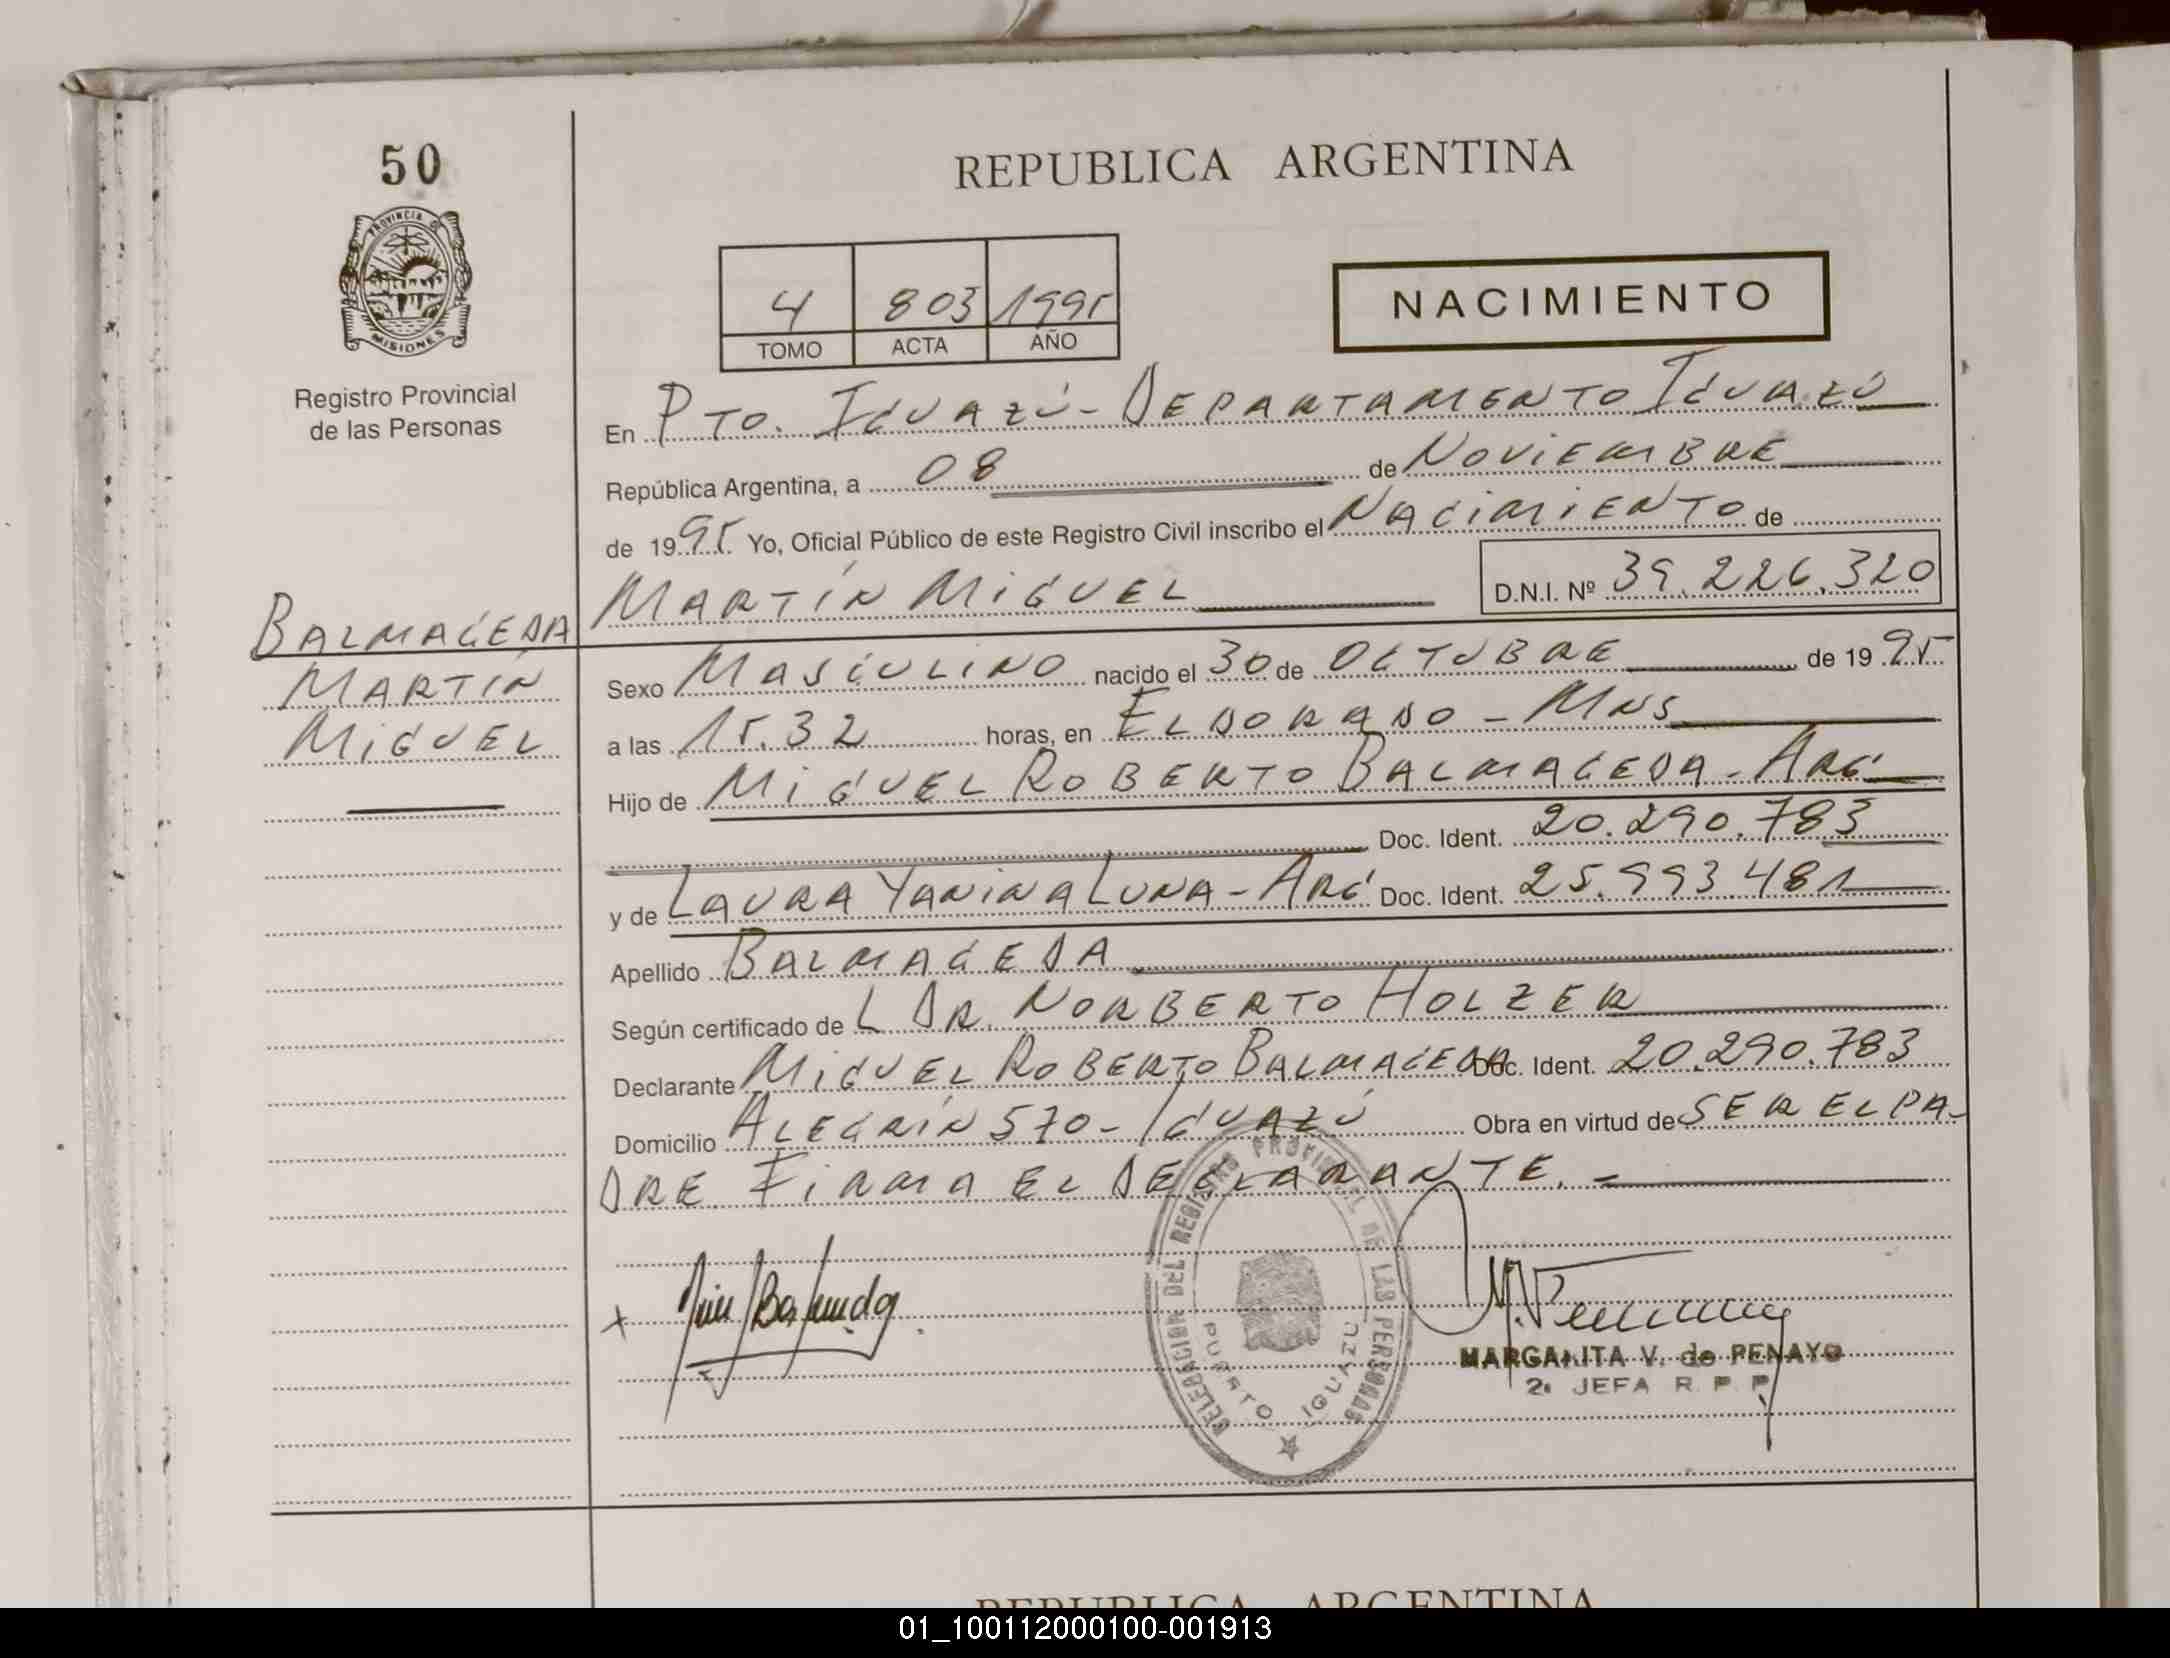 50
PROVINCIA DE
MISIONES
Registro Provincial
de las Personas
REPUBLICA ARGENTINA
4 803 1995
TOMO ACTA AÑO
NACIMIENTO
En PTO. IGUAZÚ - DEPARTAMENTO IGUAZÚ
República Argentina, a 08 de NOVIEMBRE
de 1995 Yo, Oficial Público de este Registro Civil inscribo el NACIMIENTO de
MARTÍN MIGUEL D.N.I. Nº 39.226.320
BALMACEDA
MARTÍN
MIGUEL
Sexo MASCULINO nacido el 30 de OCTUBRE de 1995
a las 15.32 horas, en ELDORADO - MNS
Hijo de MIGUEL ROBERTO BALMACEDA - ARG
Doc. Ident. 20.290.783
y de LAURA YANINA LUNA - ARG Doc. Ident. 25.993.481
Apellido BALMACEDA
Según certificado de L DR. NORBERTO HOLZER
Declarante MIGUEL ROBERTO BALMACEDA Doc. Ident. 20.290.783
Domicilio ALEGRÍN 570 - IGUAZÚ Obra en virtud de SER EL PA-
DRE. FIRMA EL DECLARANTE. -
DELEGACION DEL REGISTRO PROVINCIAL DE LAS PERSONAS
PUERTO IGUAZU
MARGARITA V. de PENAYO
2a JEFA R. P. P.
REPUBLICA ARGENTINA
01_100112000100-001913